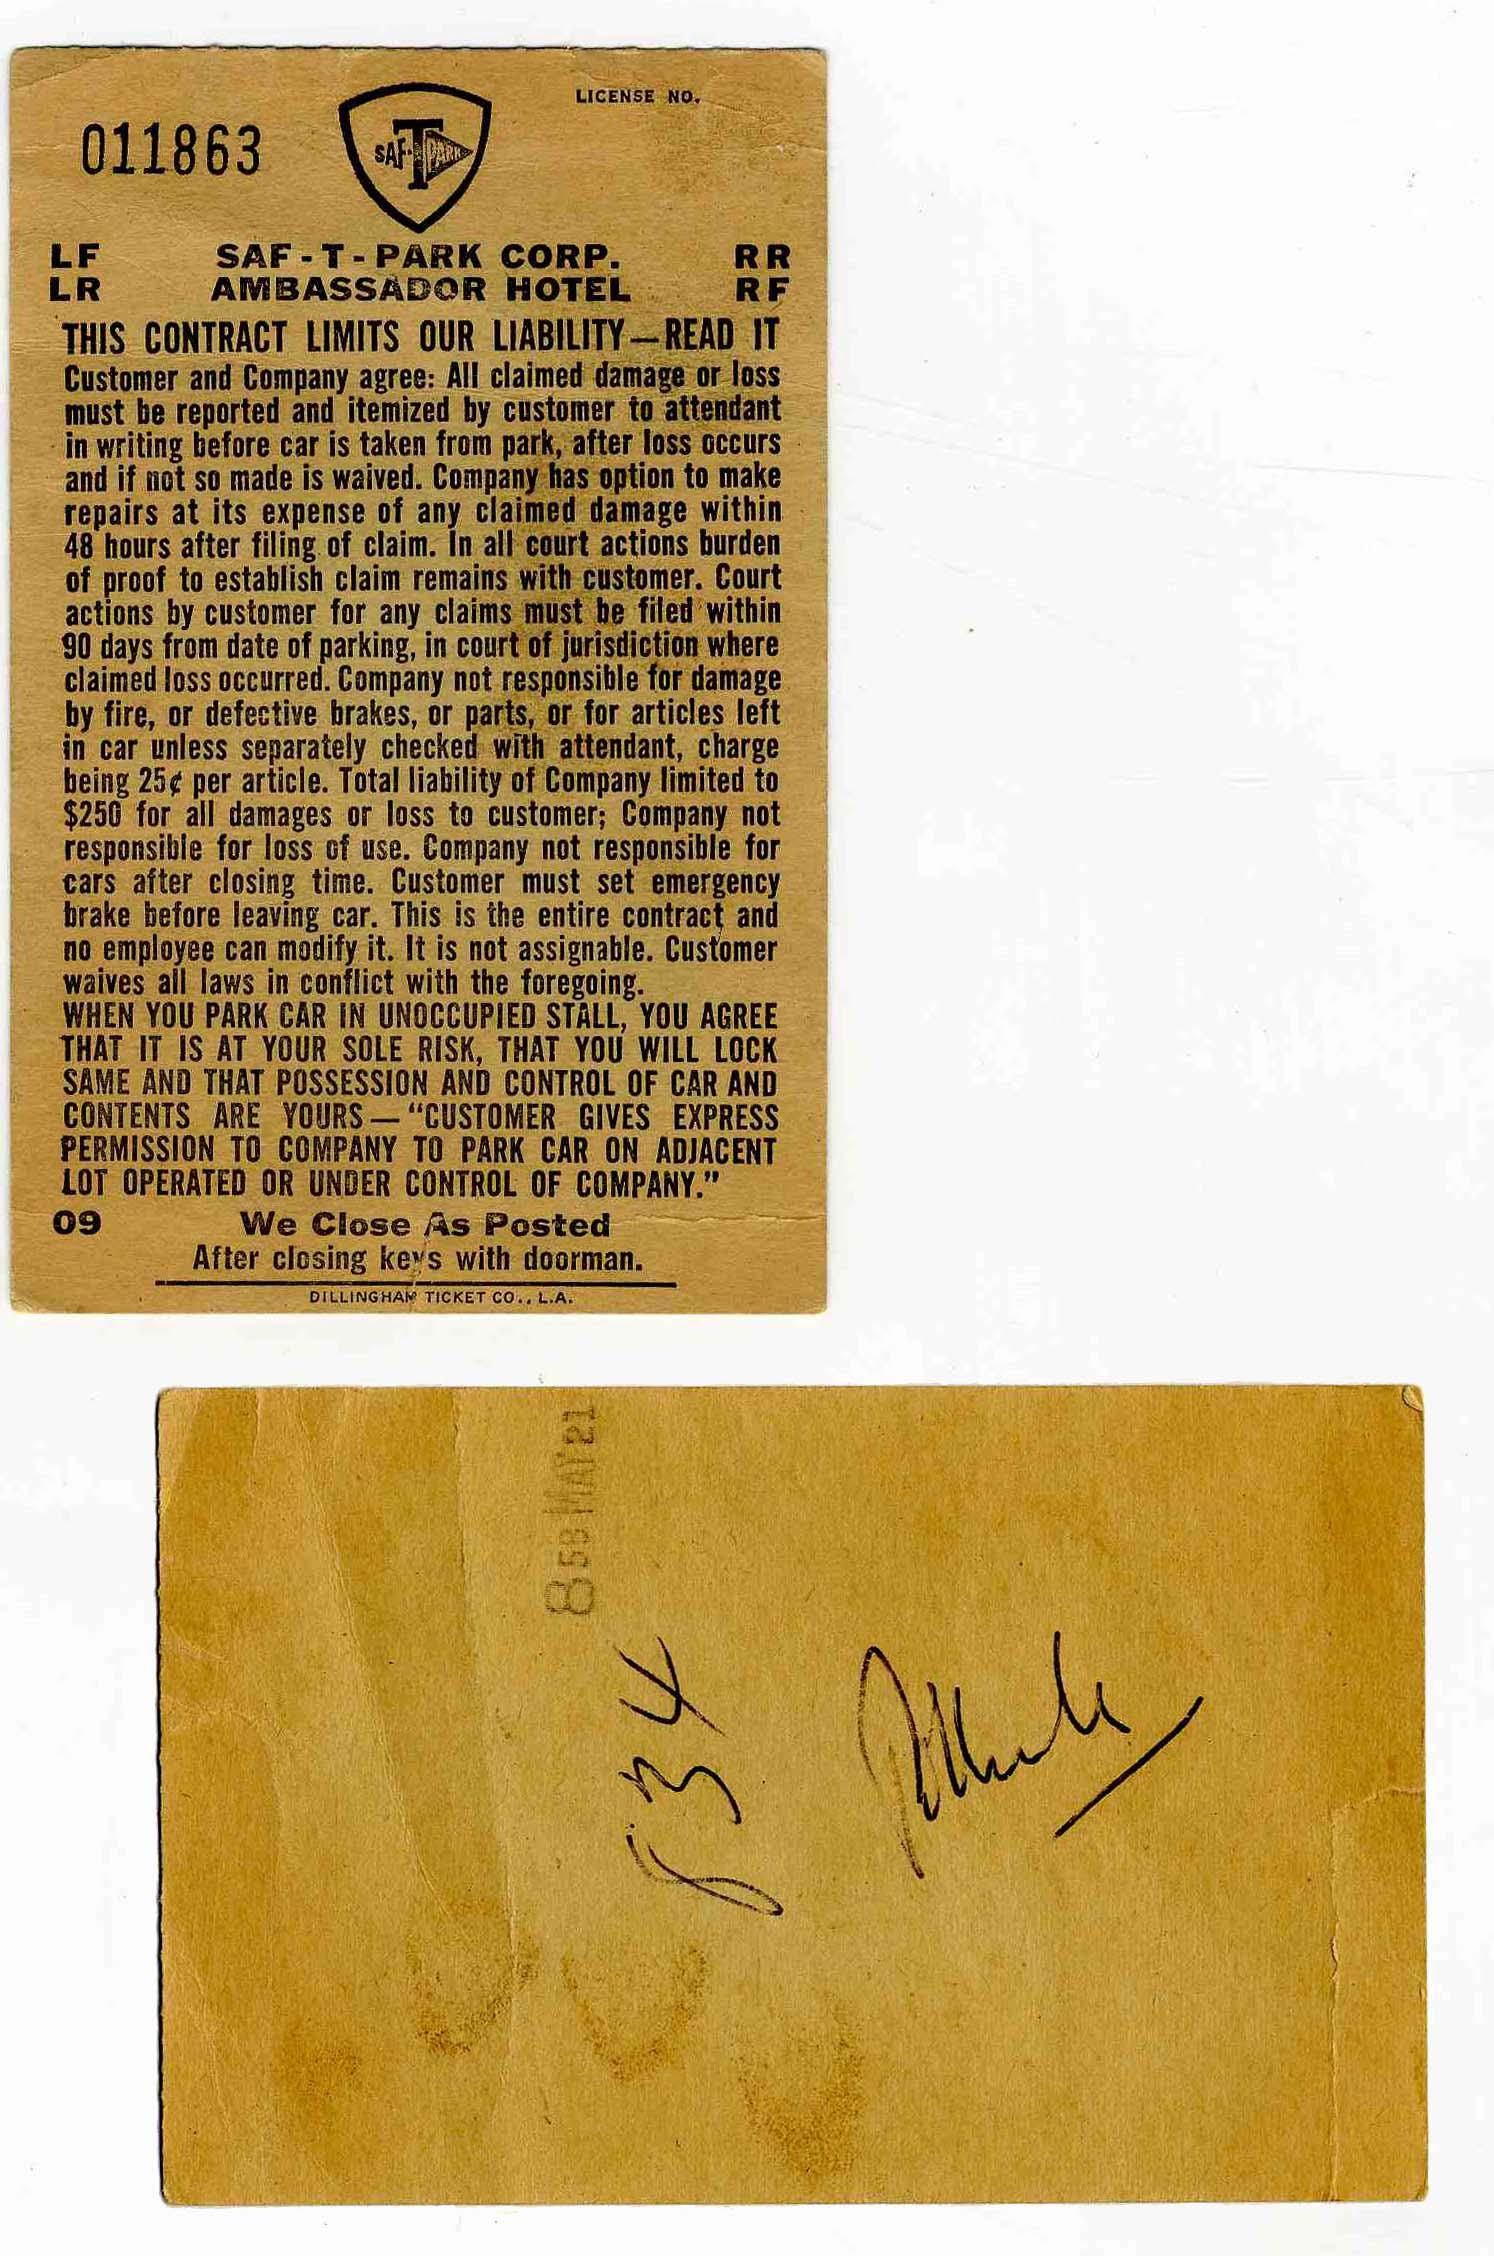 LICENSE NO.
011863
SAF-T-PARK
LF SAF-T-PARK CORP. RR
LR AMBASSADOR HOTEL RF
THIS CONTRACT LIMITS OUR LIABILITY—READ IT
Customer and Company agree: All claimed damage or loss
must be reported and itemized by customer to attendant
in writing before car is taken from park, after loss occurs
and if not so made is waived. Company has option to make
repairs at its expense of any claimed damage within
48 hours after filing of claim. In all court actions burden
of proof to establish claim remains with customer. Court
actions by customer for any claims must be filed within
90 days from date of parking, in court of jurisdiction where
claimed loss occurred. Company not responsible for damage
by fire, or defective brakes, or parts, or for articles left
in car unless separately checked with attendant, charge
being 25¢ per article. Total liability of Company limited to
$250 for all damages or loss to customer; Company not
responsible for loss of use. Company not responsible for
cars after closing time. Customer must set emergency
brake before leaving car. This is the entire contract and
no employee can modify it. It is not assignable. Customer
waives all laws in conflict with the foregoing.
WHEN YOU PARK CAR IN UNOCCUPIED STALL, YOU AGREE
THAT IT IS AT YOUR SOLE RISK, THAT YOU WILL LOCK
SAME AND THAT POSSESSION AND CONTROL OF CAR AND
CONTENTS ARE YOURS—"CUSTOMER GIVES EXPRESS
PERMISSION TO COMPANY TO PARK CAR ON ADJACENT
LOT OPERATED OR UNDER CONTROL OF COMPANY."
09 We Close As Posted
After closing keys with doorman.
DILLINGHAM TICKET CO., L.A.
8 59 MAY 21
534